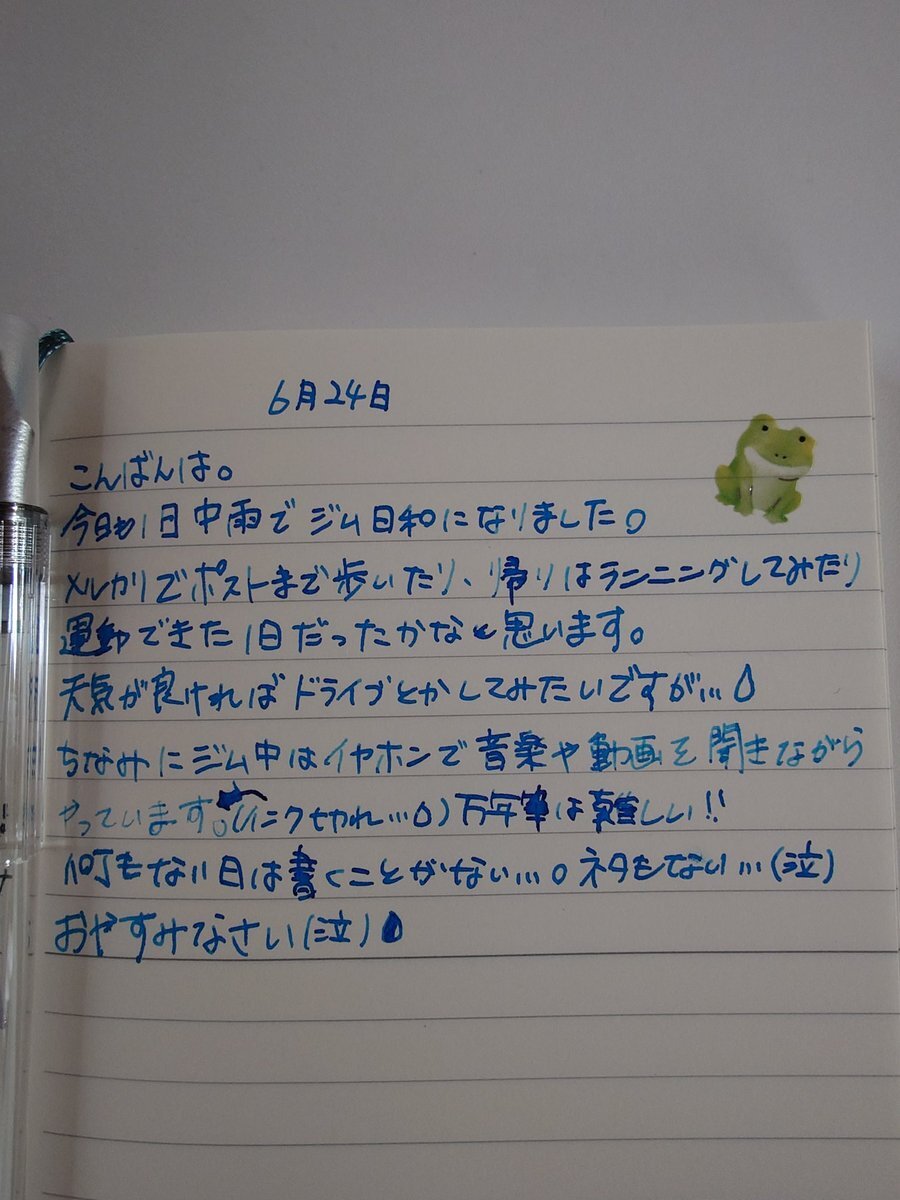 6月24日
こんばんは。
今日も1日中雨でジム日和になりました。
メルカリでポストまで歩いたり、帰りはランニングしてみたり
運動できた1日だったかなと思います。
天気が良ければドライブとかしてみたいですが…
ちなみにジム中はイヤホンで音楽や動画を聞きながら
やっています。(インクちゃれ…)万年筆は難しい!!
何もない日は書くことがない…。ネタもない…(泣)
おやすみなさい(泣)